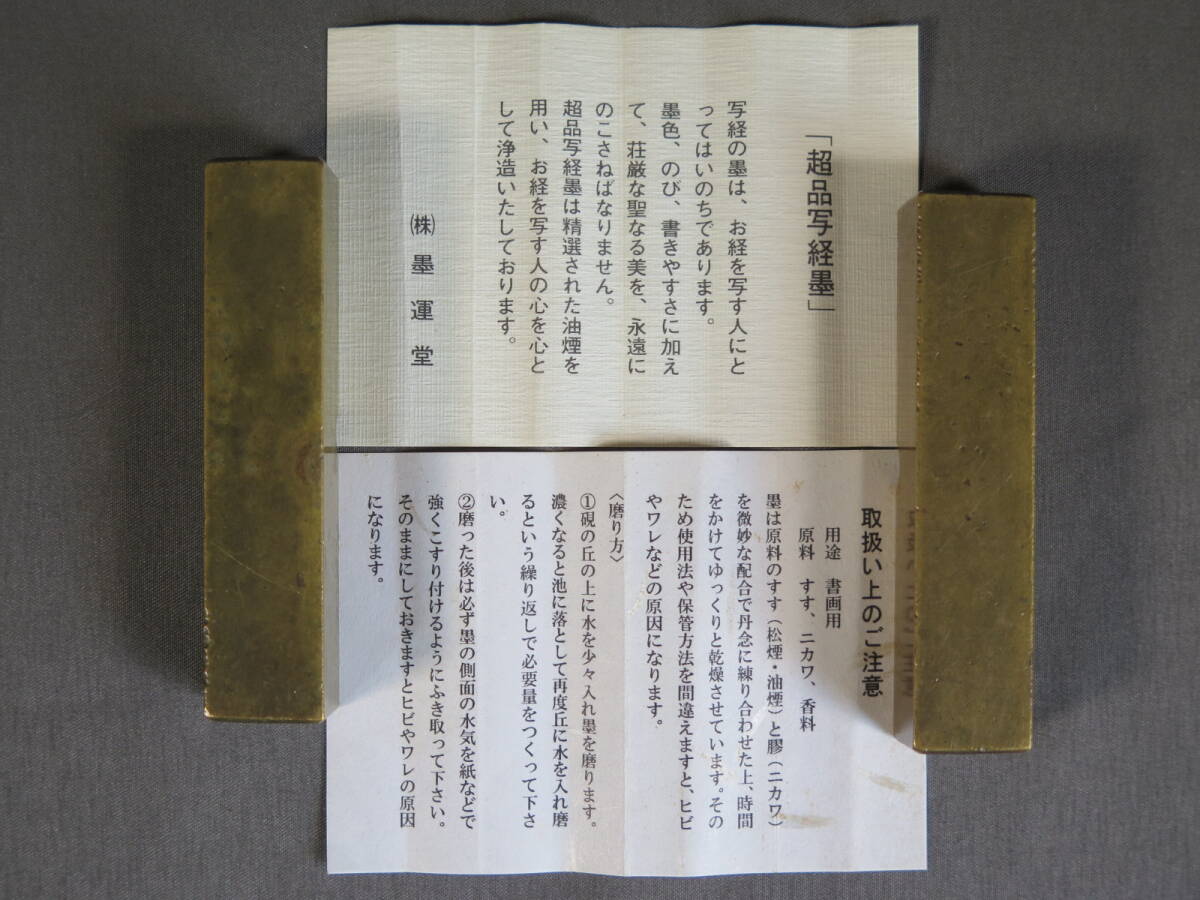 「超品写経墨」
写経の墨は、お経を写す人にと
ってはいのちであります。
墨色、のび、書きやすさに加え
て、荘厳な聖なる美を、永遠に
のこさねばなりません。
超品写経墨は精選された油煙を
用い、お経を写す人の心を心と
して浄造いたしております。
㈱墨運堂
取扱い上のご注意
用途 書画用
原料 すす、ニカワ、香料
墨は原料のすす（松煙・油煙）と膠（ニカワ）
を微妙な配合で丹念に練り合わせた上、時間
をかけてゆっくりと乾燥させています。その
ため使用法や保管方法を間違えますと、ヒビ
やワレなどの原因になります。
〈磨り方〉
①硯の丘の上に水を少々入れ墨を磨ります。
濃くなると池に落として再度丘に水を入れ磨
るという繰り返しで必要量をつくって下さ
い。
②磨った後は必ず墨の側面の水気を紙などで
強くこすり付けるようにふき取って下さい。
そのままにしておきますとヒビやワレの原因
になります。